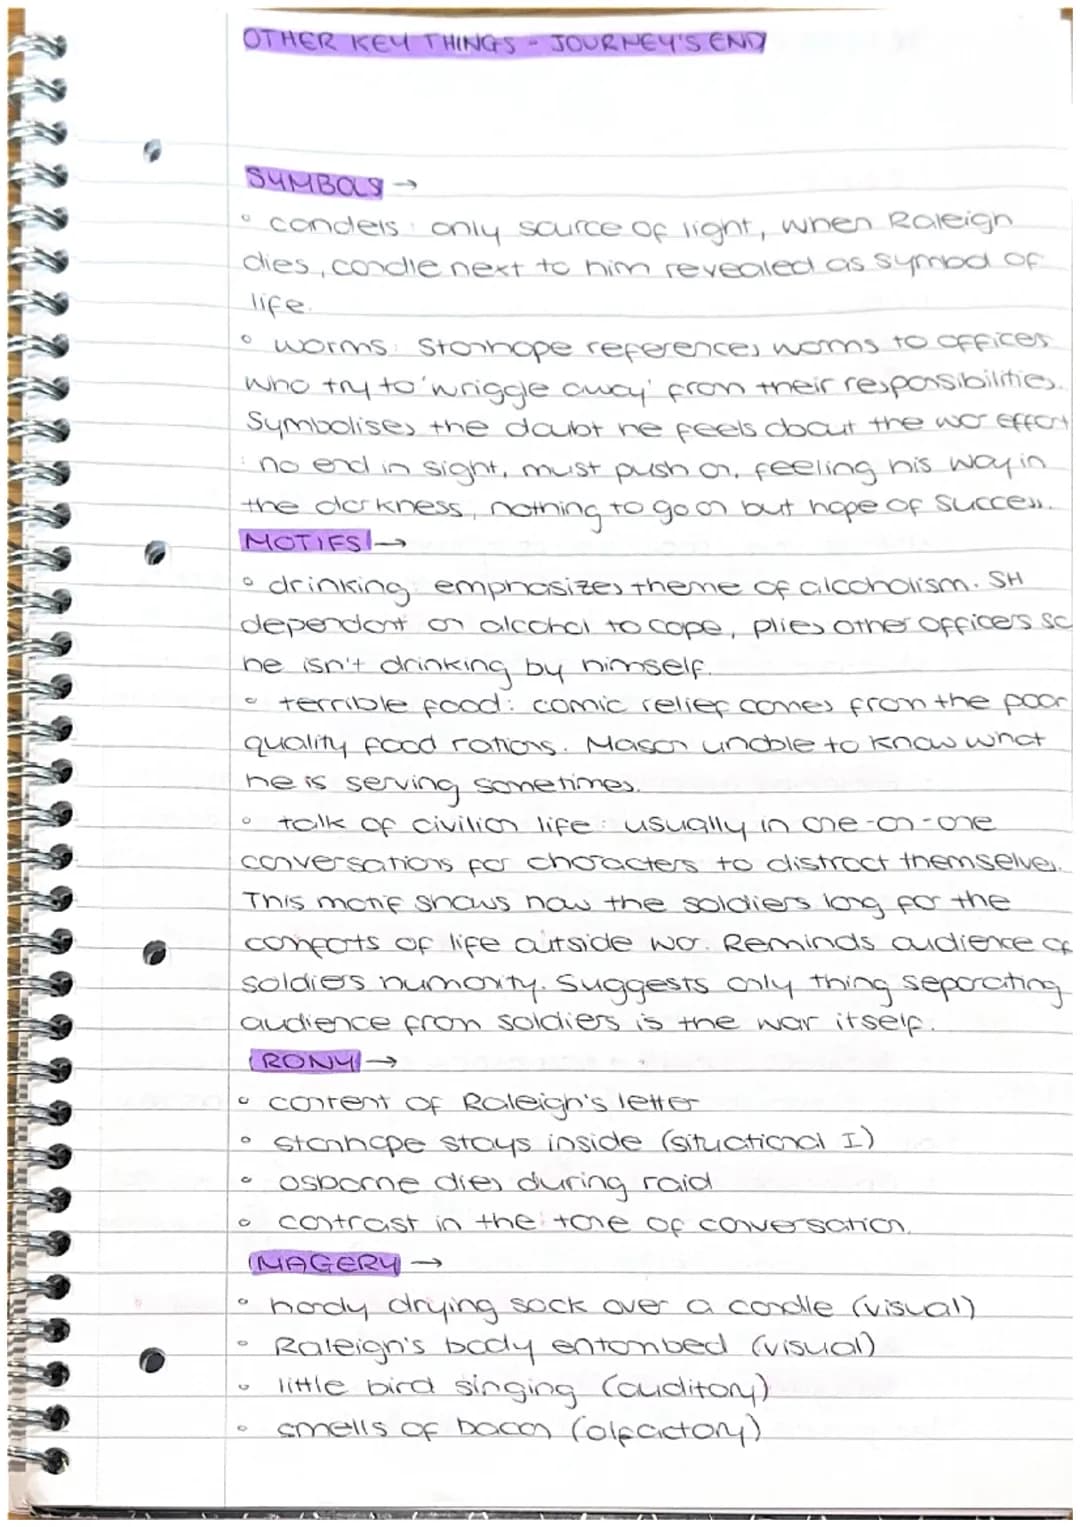 OTHER KEY THINGS - JOURNEY'S END
SYMBOLS →
° candels: only source of light, when Raleigh
dies, candle next to him revealed as symbol of
life.
° worms: Stanhope references worms to officers
who try to 'wriggle away' from their responsibilities.
Symbolises the doubt he feels about the war effort
: no end in sight, must push on, feeling his way in
the darkness, nothing to go on but hope of success.
MOTIFS →
° drinking: emphasizes theme of alcoholism. SH
dependant on alcohol to cope, plies other officers so
he isn't drinking by himself.
° terrible food: comic relief comes from the poor
quality food rations. Mason unable to know what
he is serving sometimes.
° talk of civilian life: usually in one-on-one
conversations for characters to distract themselves.
This motif shows how the soldiers long for the
comforts of life outside war. Reminds audience of
soldiers humanity. Suggests only thing separating
audience from soldiers is the war itself.
IRONY →
° content of Raleigh's letter
° stanhope stays inside (situational I)
° osborne dies during raid
° contrast in the tone of conversation.
IMAGERY →
° hardy drying sock over a candle (visual)
° Raleigh's body entombed (visual)
° little bird singing (auditory)
° smells of bacon (olfactory)